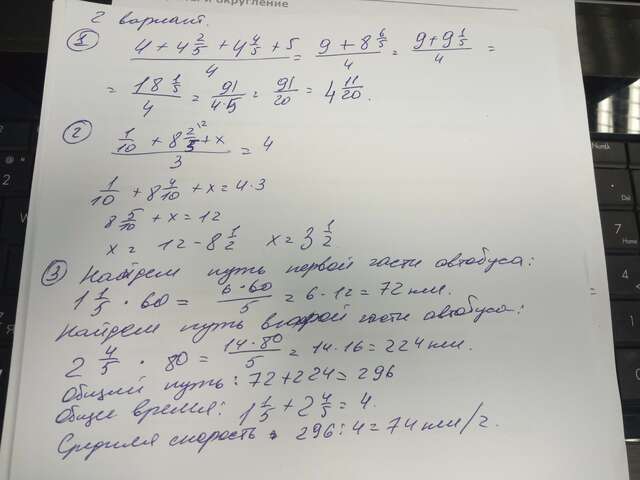 и округление
2 вариант.
1 (4 + 4 2/5 + 4 4/5 + 5)/4 = (9 + 8 6/5)/4 = (9 + 9 1/5)/4 =
= (18 1/5)/4 = 91/(4·5) = 91/20 = 4 11/20.
2 (1/10 + 8 2/5 + x)/3 = 4
1/10 + 8 4/10 + x = 4·3
8 5/10 + x = 12
x = 12 - 8 1/2 x = 3 1/2.
3 Найдем путь первой части автобуса:
1 1/5 · 60 = (6·60)/5 = 6·12 = 72 км.
Найдем путь второй части автобуса:
2 4/5 · 80 = (14·80)/5 = 14·16 = 224 км.
Общий путь: 72 + 224 = 296
Общее время: 1 1/5 + 2 4/5 = 4.
Средняя скорость: 296 : 4 = 74 км/ч.